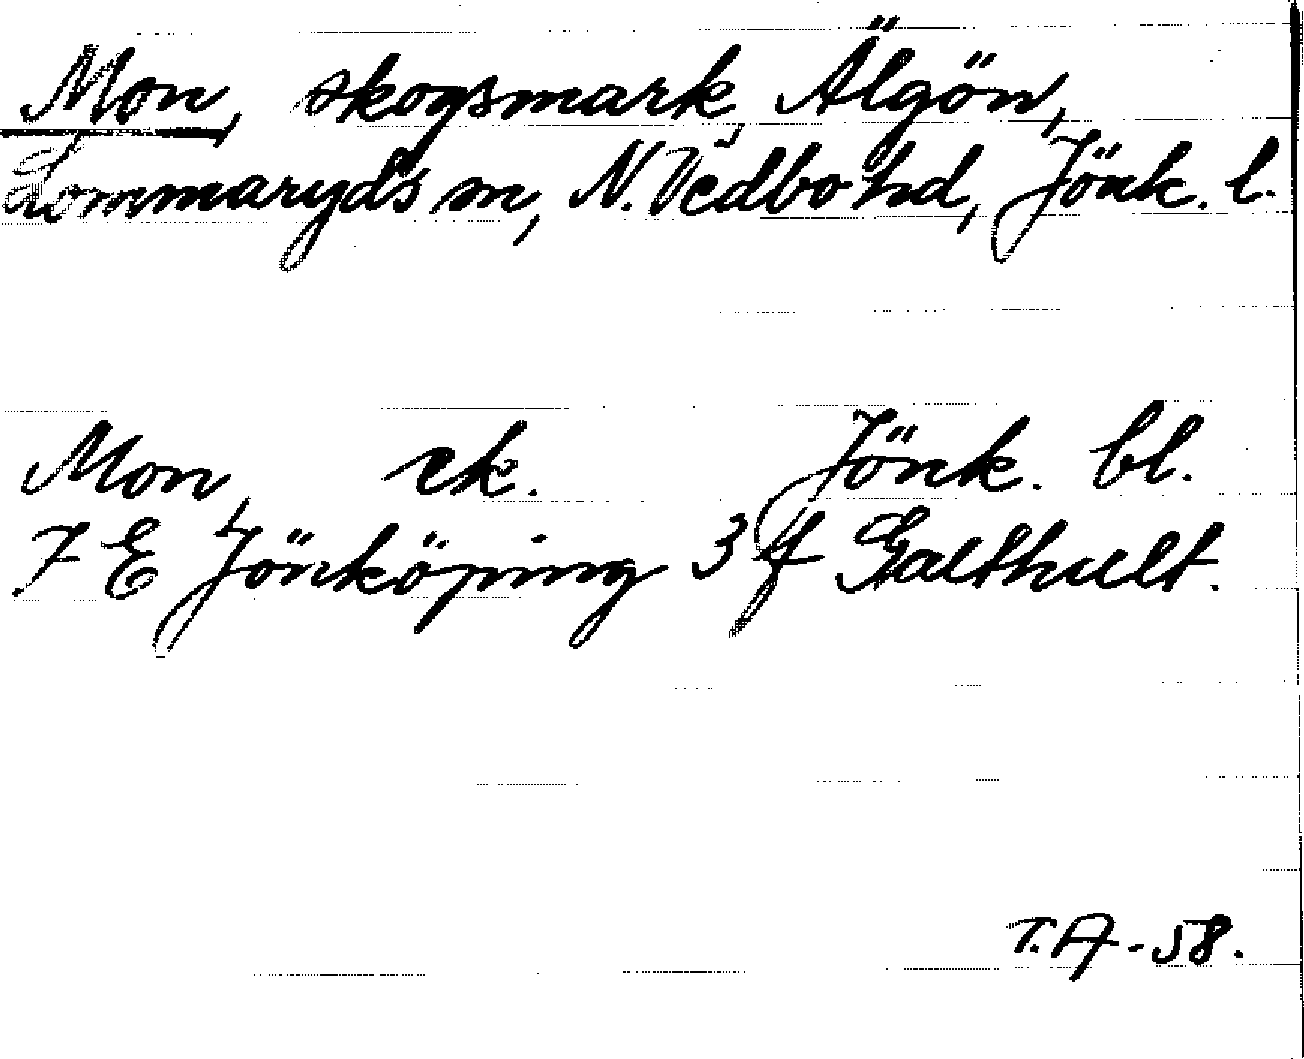 Mon, skogsmark, Älgön,
Lommaryds sn, N. Vedbo hd, Jönk. l.
Mon, ek. Jönk. bl.
7 E Jönköping 3 f Galthult.
T.A -58.